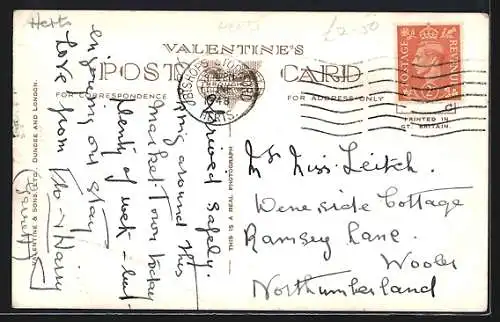 Herts
HERTS
£2-50
VALENTINE'S
POST CARD
FOR CORRESPONDENCE
FOR ADDRESS ONLY
BISHOPS STORTFORD
HERTS.
POSTAGE
REVENUE
PRINTED IN
GT. BRITAIN.
VALENTINE & SONS LTD. DUNDEE AND LONDON.
THIS IS A REAL PHOTOGRAPH
Arrived safely.
around this
Market Town today
Plenty of wet - but
enjoying our stay
Love from
Miss. Leitch.
Wene side Cottage
Ramsey Lane.
Wooler
Northumberland